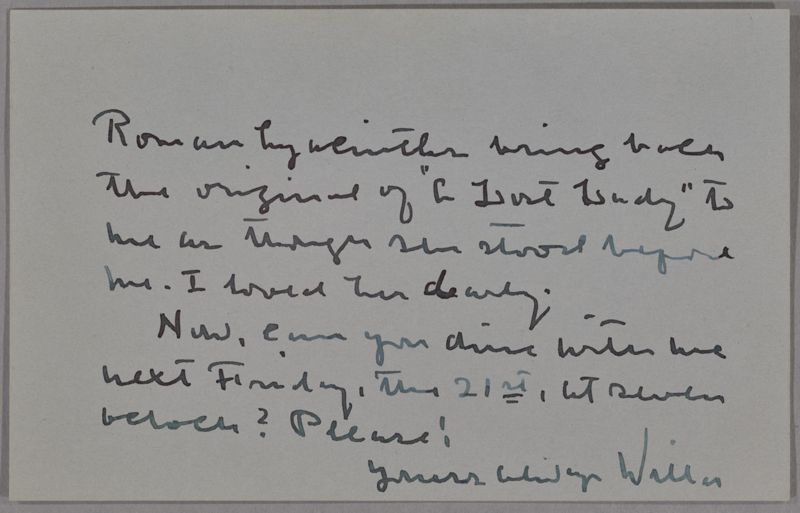 Roman hyacinths bring back
the original of "A Lost Lady" to
me as though she stood before
me. I loved her dearly.
Now, can you dine with me
next Friday, the 21st, at seven
oclock? Please!
Yours always Willa